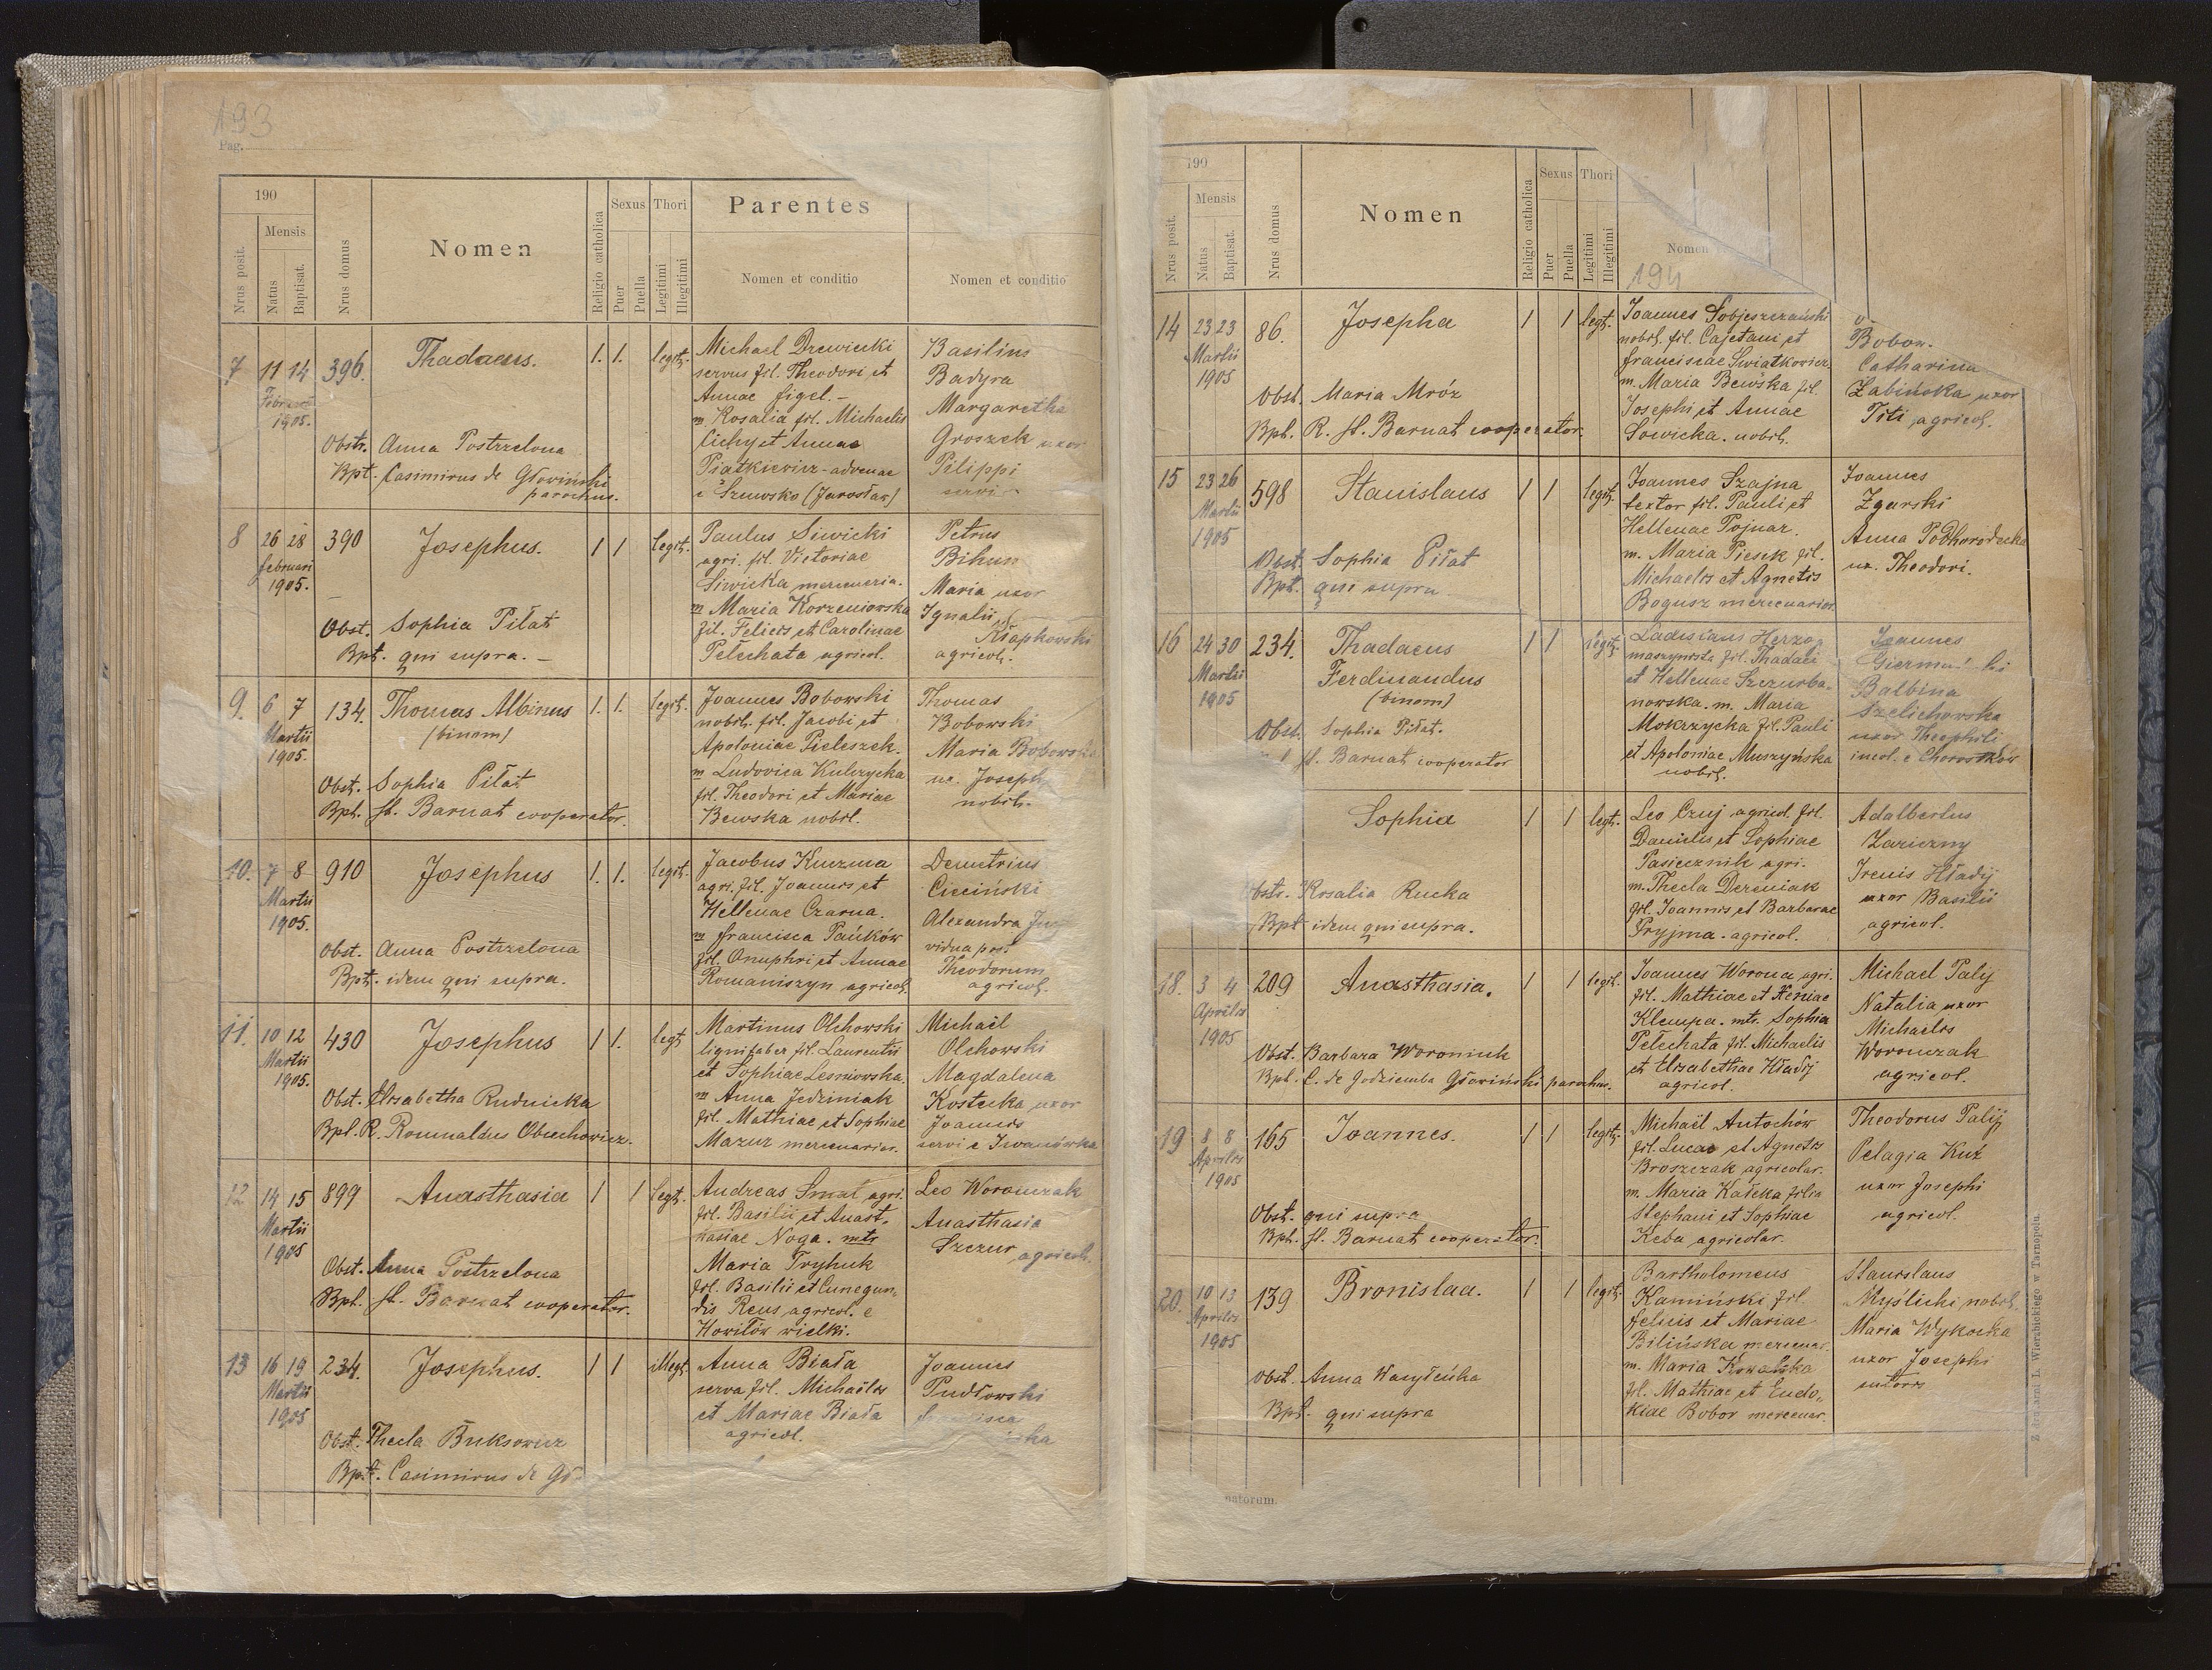 193
Pag.
190
Mensis
Nrus posit.
Natus
Baptisat.
Nrus domus
Nomen
Religio catholica
Sexus
Puer
Puella
Thori
Legitimi
Illegitimi
Parentes
Nomen et conditio
Nomen et conditio
7 11 14 396. Thadaeus. 1. 1. legit.
1905.
Obstr. Anna Postrzelona
Bpt. Casimirus de Głowiński
parochus.
Michael Drewicki
servus fil. Theodori et
Annae figel. -
m Rosalia fil. Michaelis
Cichy et Annae
Piatkiewicz - advenae
e Szewsko (Jarosław)
Basilius
Badyra
Margaretha
Groszek uxor
Pilippi
servi
8 26 28 390 Josephus. 1 1 legit.
februari
1905.
Obst. Sophia Piłat
Bpt. qui supra. -
Paulus Siwicki
agri. fil. Victoriae
Siwicka mercenaria.
m Maria Korzeniowska
fil. Felicis et Carolinae
Pełechata agricol.
Petrus
Bihun
Maria uxor
Ignatii
Kłapkowski
agricol.
9. 6 7 134. Thomas Albinus 1. 1. legit.
Martii (binom)
1905.
Obst. Sophia Piłat
Bpt. St. Barnat cooperator.
Joannes Bobowski
nobil. fil. Jacobi et
Apoloniae Pieleszek.
m Ludovica Kulczycka
fil. Theodori et Mariae
Bewska nobil.
Thomas
Bobowski
Maria Bobowska
ux. Joseph
nobil.
10. 7 8 910 Josephus 1. 1. legit.
Martii
1905.
Obst. Anna Postrzelona
Bpt. idem qui supra.
Jacobus Kuczma
agri. fil. Joannis et
Hellenae Czarna.
m francisca Pańków
fil. Onuphri et Annae
Romaniszyn agricol.
Demetrius
Ciciński
Alexandra
vidua post
Theodorum
agricol.
11. 10 12 430 Josephus 1 1. legt.
Martii
1905.
Obst. Elisabetha Rudnicka
Bpt. R. Romualdus Obuchowicz.
Martinus Olchowski
lignifaber fil. Laurentii
et Sophiae Lesniowska.
m Anna Jedziniak
fil. Mathiae et Sophiae
Mazur mercenarior.
Michaël
Olchowski
Magdalena
Kostecka uxor
Joannis
servi e Iwanówka
12 14 15 899 Anasthasia 1 1 legt.
Martii
1905
Obst. Anna Postrzelona
Bpt. St. Barnat cooperator.
Andreas Smat agri.
fil. Basilii et Anast-
hasiae Noga. mtr
Maria Tryhuk
fil. Basilii et Cunegun-
dis Reus agricol. e
Howiłów wielki.
Leo Woronczak
Anasthasia
Szczur agricol.
13 16 19 234. Josephus. 1 1 illegt
Martii
1905
Obst. Thecla Buksowicz
Bpt. Casimirus de Gł
Anna Biała
serva fil. Michaëlis
et Mariae Biała
agricol.
Joannes
Pudłowski
francisca
190
Mensis
Nrus posit.
Natus
Baptisat.
Nrus domus
Nomen
Religio catholica
Sexus
Puer
Puella
Thori
Legitimi
Illegitimi
Nomen
194
14 23 23 86. Josepha 1 1 legt.
Martii
1905
Obst. Maria Mróz
Bpt. R. St. Barnat cooperator
Joannes Sobjeszczański
nobil. fil. Cajetani et
franciscae Swiatkowicz.
m. Maria Bewska fil.
Josephi et Annae
Sowicka. nobil.
Bobow.
Catharina
Żabińska uxor
Titi agricol.
15 23 26 598 Stanislaus 1 1 legit.
Martii
1905
Obst. Sophia Piłat
Bpt. qui supra
Joannes Szajna
textor fil. Pauli et
Hellenae Pojnar.
m. Maria Piesek fil.
Michaelis et Agnetis
Bogusz mercenarior.
Joannes
Zgurski
Anna Podhorodecka
ux. Theodori.
16 24 30 234. Thadaeus 1 1 legit.
Martii Ferdinandus
1905 (binom)
Obst. Sophia Piłat.
St. Barnat cooperator
Ladislaus Herzog
maszynista fil. Thadaei
et Hellenae Szczurba-
nowska. m. Maria
Mokrzycka fil. Pauli
et Apoloniae Muszyńska
nobil.
Joannes
Balbina
Szelichowska
uxor Theophili
incol. e Chorostków
Sophia 1 1 legt.
Obstr. Rosalia Rucka
Bpt idem qui supra.
Leo Czuj agricol. fil.
Danielis et Sophiae
Pasiecznik agri.
m. Thecla Dereniak
fil. Joannis et Barbarae
Pryjma. agricol.
Adalbertus
Zariczny
Irenis Hładij
uxor Basilii
agricol.
18. 3 4 209 Anasthasia. 1 1 legit.
Aprilis
1905
Obst. Barbara Woroniuk
Bpt. C. de Godziemba Głowiński parochus.
Joannes Worona agri.
fil. Mathiae et Xeniae
Klempa. mtr. Sophia
Pełechata fil. Michaelis
et Elisabethae Hładij
agricol.
Michael Palij
Natalia uxor
Michaelis
Woronczak
agricol.
19 8 8 165 Joannes. 1 1 legit.
Aprilis
1905
Obst. qui supra
Bpt. St. Barnat cooperator.
Michaël Antochów
fil. Lucae et Agnetis
Broszczak agricolar.
m. Maria Kałeka filia
Stephani et Sophiae
Keba agricolar.
Theodorus Palij
Pelagia Kuź
uxor Josephi
agricol.
20. 10 13 139 Bronislaa. 1 1 legit.
Aprilis
1905
Obst. Anna Wasyłeńka
Bpt. qui supra
Bartholomeus
Kamiński fil.
felicis et Mariae
Bilińska mercenar.
m. Maria Kowalska
fil. Mathiae et Eudo-
kiae Bobor mercenar.
Stanislaus
Myślicki nobil.
Maria Wykocka
uxor Josephi
sutoris
natorum.
Z drukarni L. Wierzbickiego w Tarnopolu.